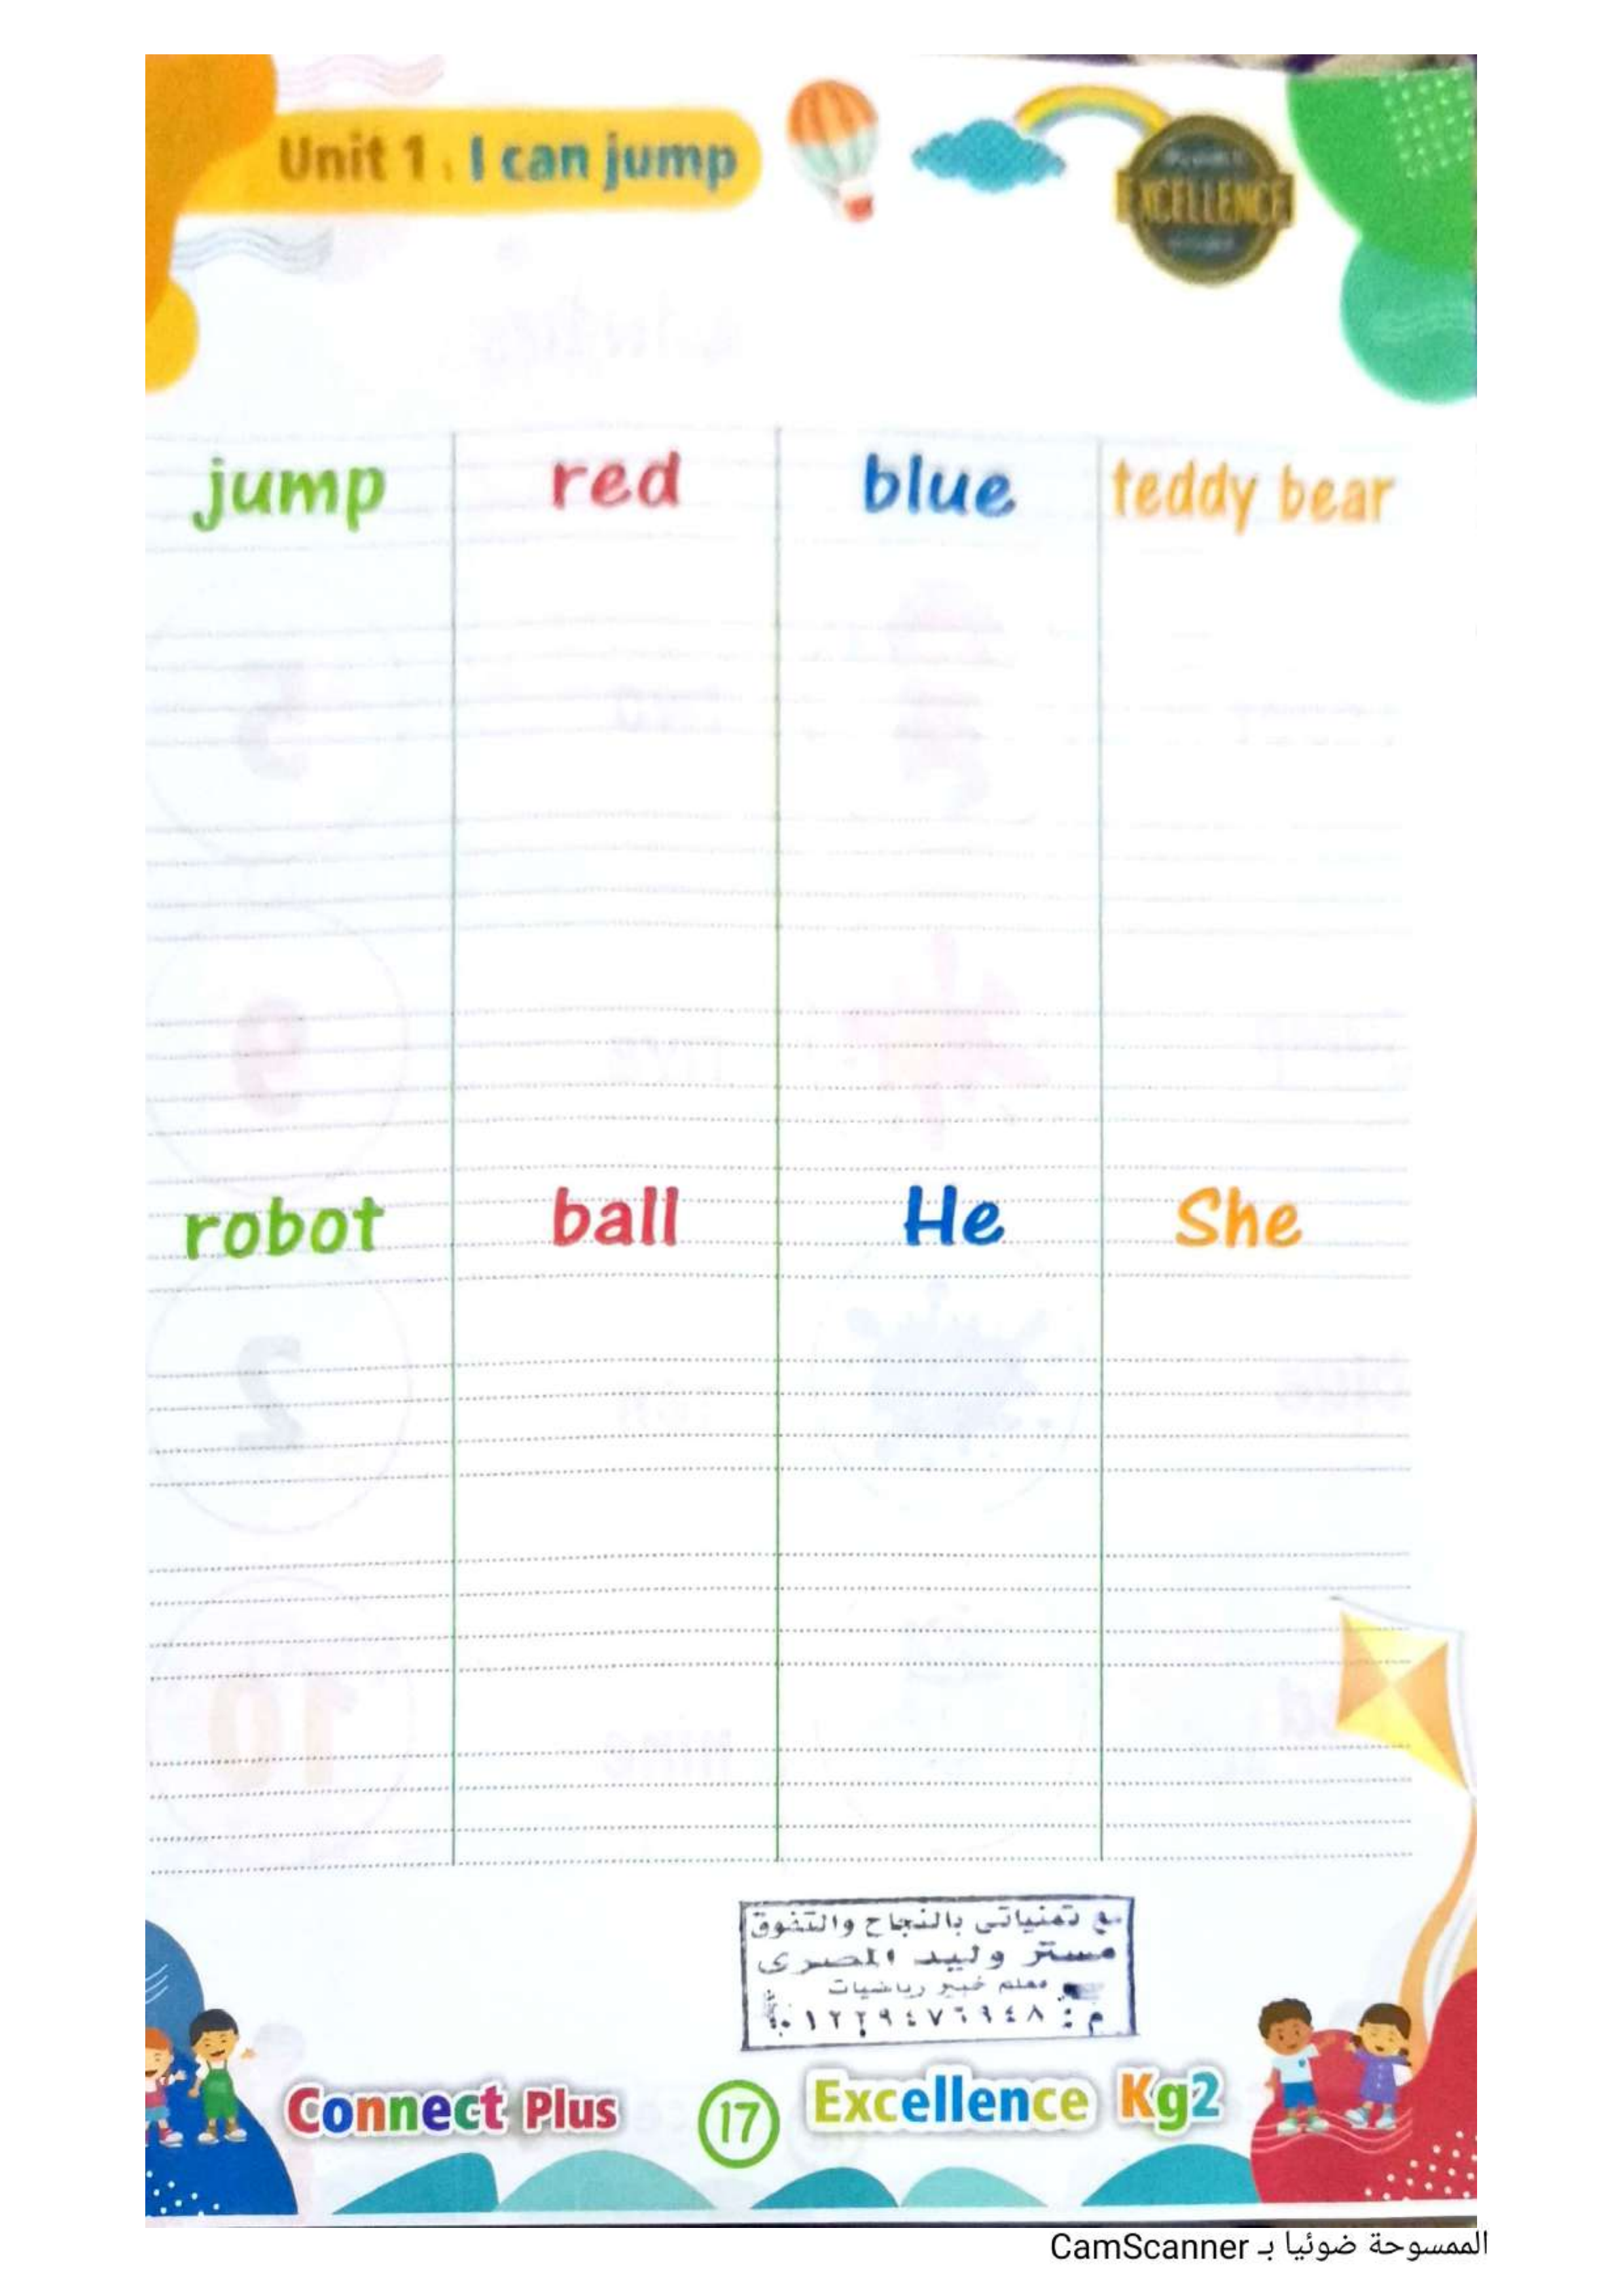 Unit 1 . I can jump
EXCELLENCE
jump red blue teddy bear
robot ball He She
مع تمنياتى بالنجاح والتفوق
مستر وليد المصرى
معلم خبير رياضيات
م : ٠١٢٢٩٤٧٦٩٤٨
Connect Plus 17 Excellence Kg2
الممسوحة ضوئيا بـ CamScanner